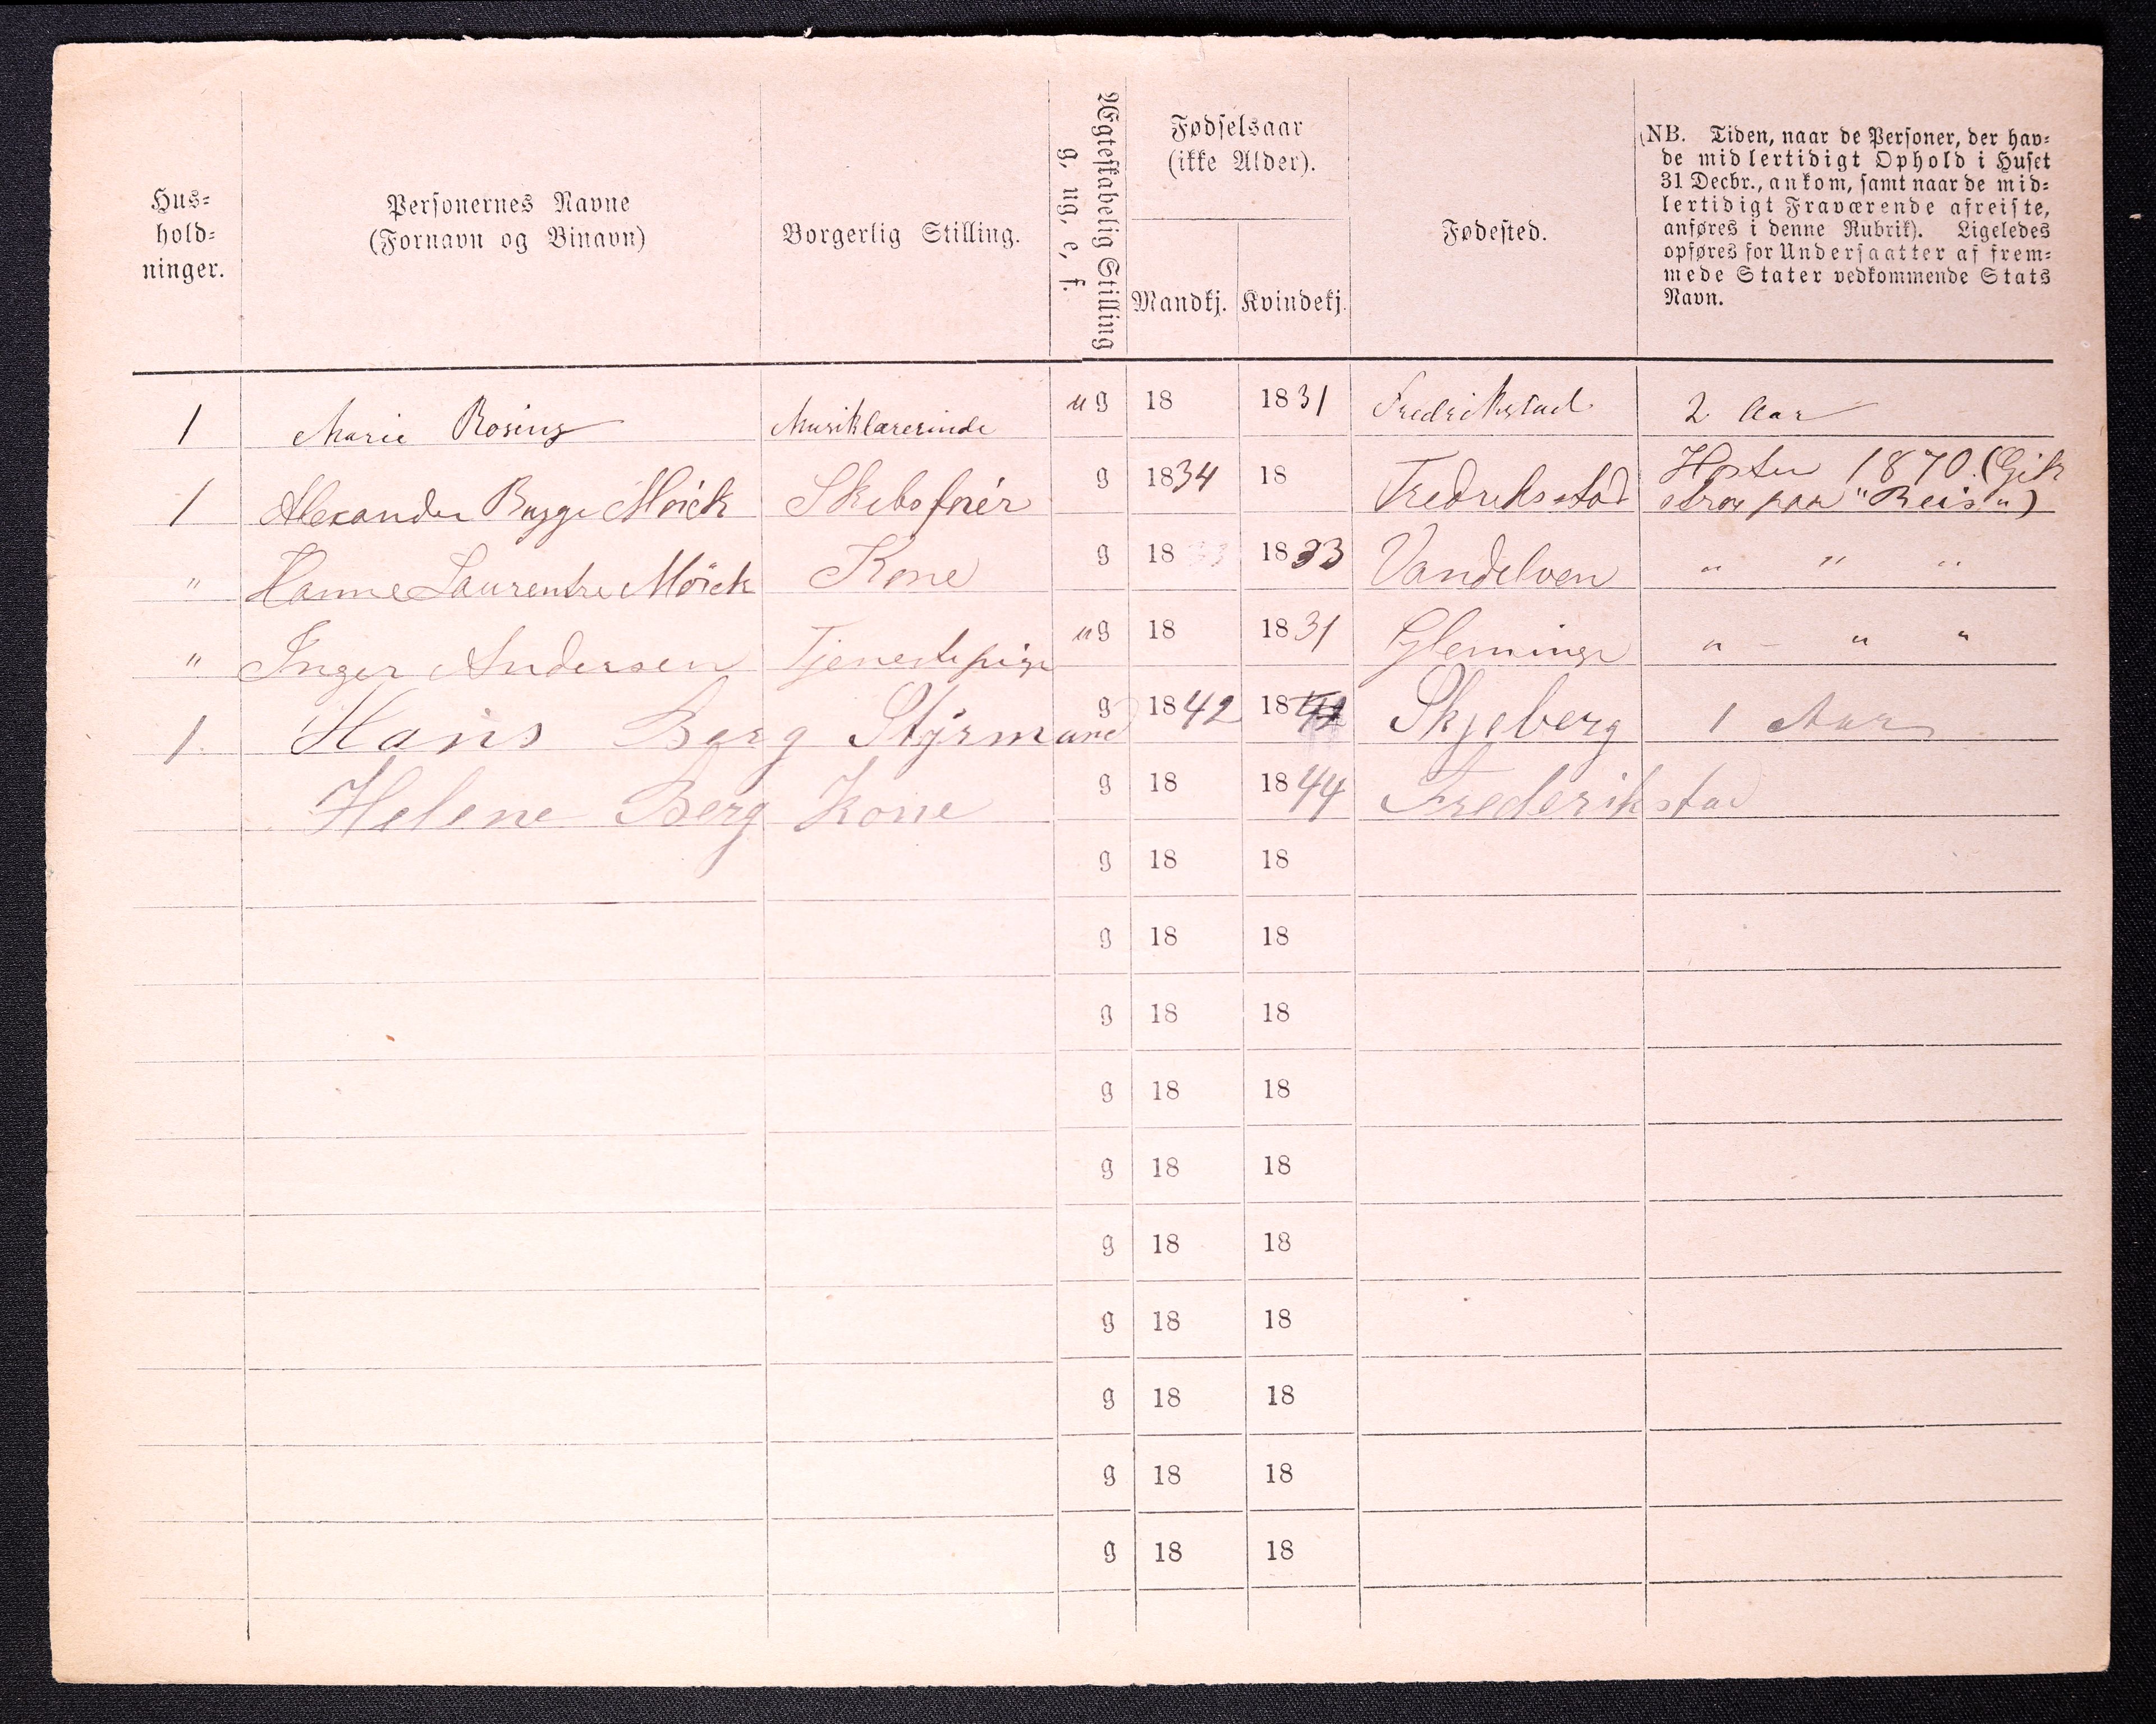 Hus-
hold-
ninger.
Personernes Navne
(Fornavn og Binavn)
Borgerlig Stilling.
Ægteskabelig Stilling
g, ug, e, f.
Fødselsaar
(ikke Alder).
Mandkj. Kvindekj.
Fødested.
(NB. Tiden, naar de Personer, der hav-
de midlertidigt Ophold i Huset
31 Decbr., ankom, samt naar de mid-
lertidigt Fraværende afreiste,
anføres i denne Rubrik). Ligeledes
opføres for Undersaatter af frem-
mede Stater vedkommende Stats
Navn.
1 Marie Rosing Musiklærerinde ug 18 1831 Fredrikstad 2 Aar
1 Alexander Bugge Mörck Skibsfører g 1834 18 Fredriksstad Høsten 1870. (Gik
strax paa "Reis")
" Hanne Laurentze Mörck Kone g 18 1833 Vandelven " " "
" Inger Andersen Tjenestepige ug 18 1831 Glemminge " " "
1. Hans Berg Styrmand g 1842 18 Skjeberg 1 Aar
Helene Berg Kone g 18 1844 Frederikstad
g 18 18
g 18 18
g 18 18
g 18 18
g 18 18
g 18 18
g 18 18
g 18 18
g 18 18
g 18 18